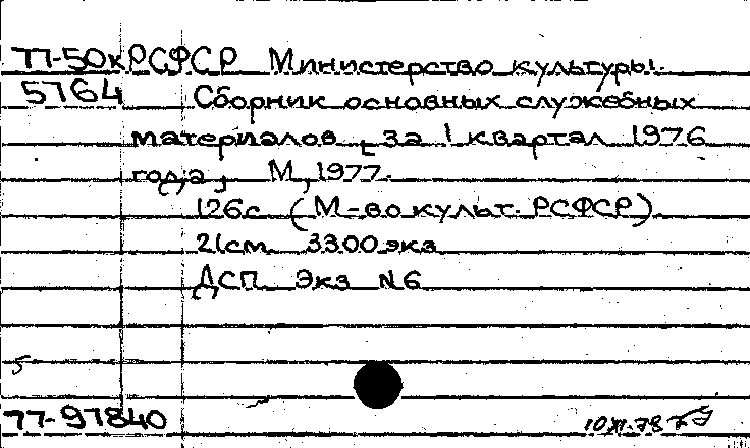 77-50к РСФСР Министерство культуры.
5764 Сборник основных служебных
материалов, [за I квартал 1976
года], М., 1977.
126с (М-во культ. РСФСР).
21см. 3300 экз
ДСП. Экз N6
5
77-97840
10 XI-78